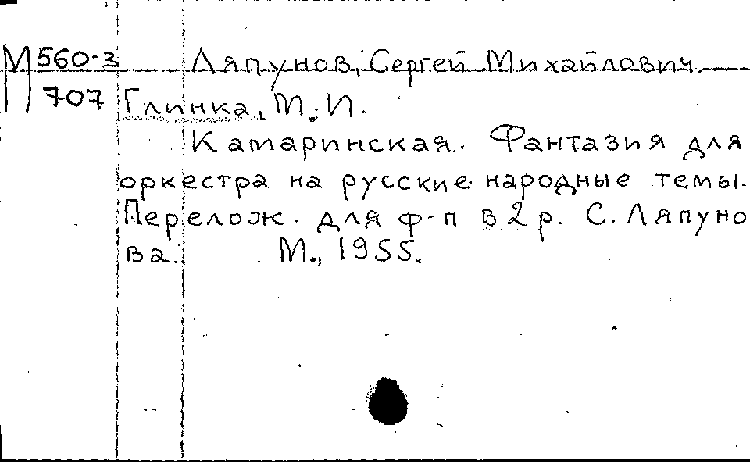 М 560-3 Ляпунов, Сергей Михайлович.
707 Глинка, М. И.
Камаринская. Фантазия для
оркестра на русские народные темы.
Перелож. для ф-п в 2 р. С. Ляпуно
ва. М., 1955.